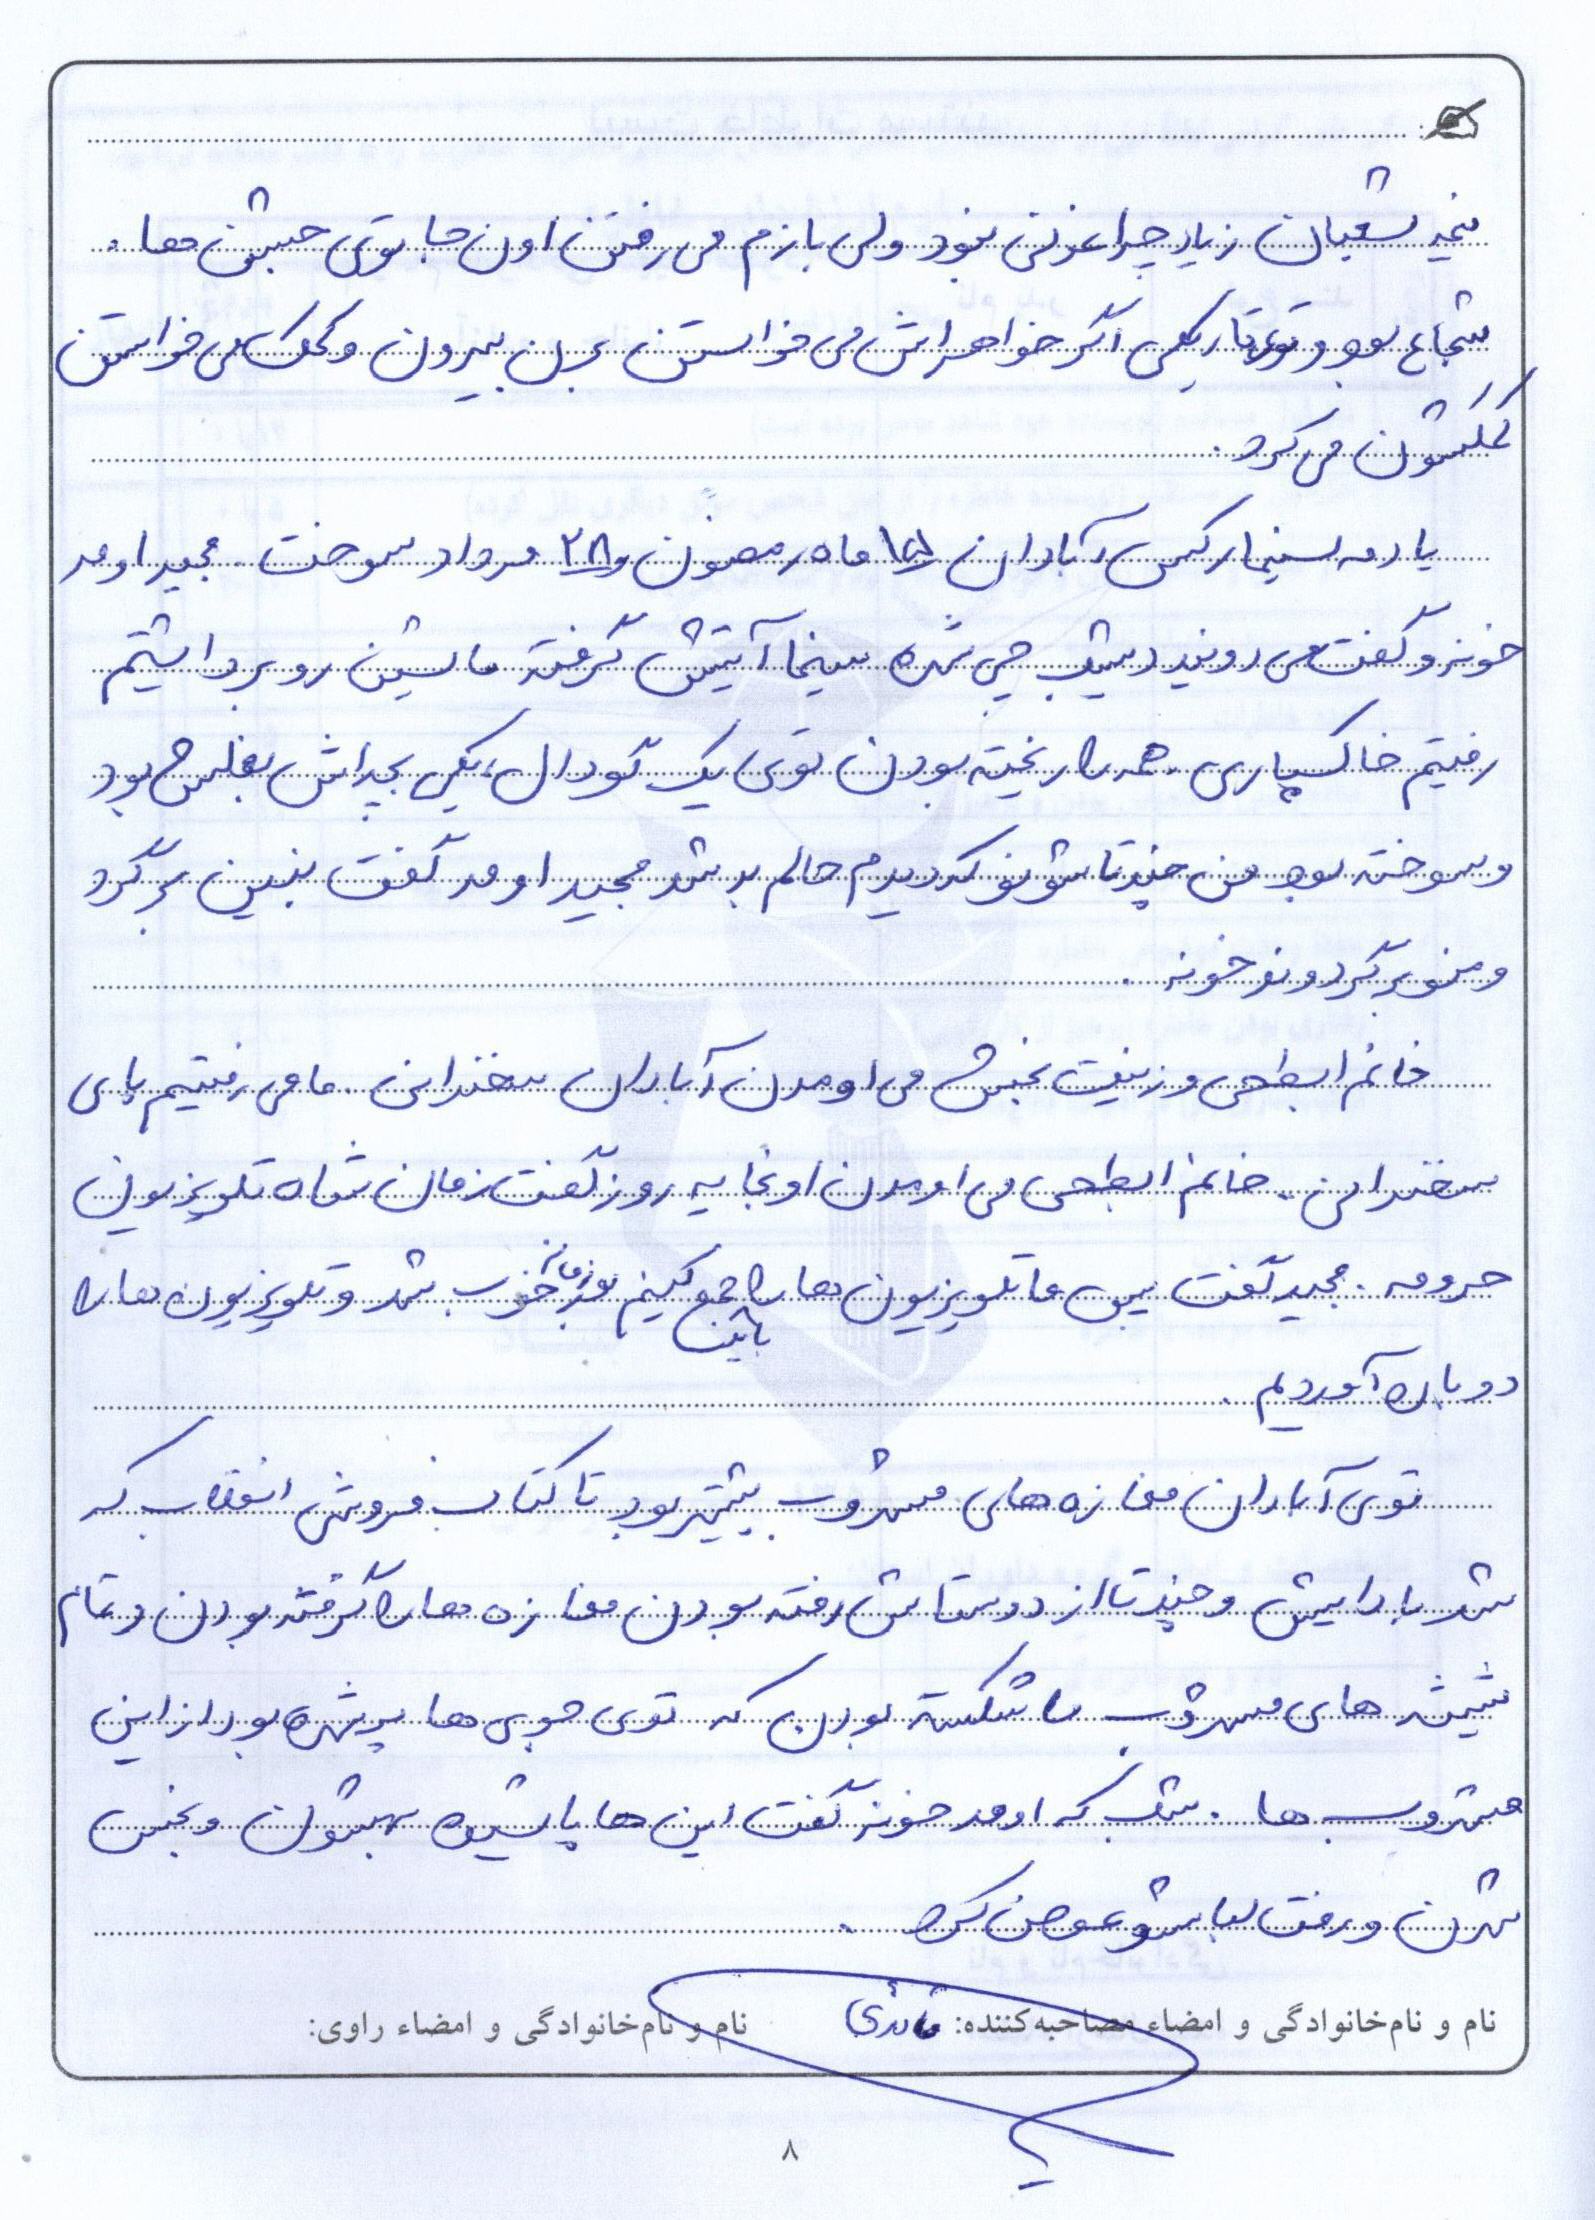 نیمه شعبان زیاد چراغونی نبود ولی بازم می رفتن اون جا توی جشن ها.
شجاع بود و توی تاریکی اگر خواهراش می خواستن برن بیرون و کمک می خواستن
کمکشون می کرد.
یادمه سینما رکس آبادان ۱۵ ماه رمضون و ۲۸ مرداد سوخت. مجید اومد
خونه و گفت می دونید دیشب چی شده سینما آتیش گرفته ماشین رو برداشتیم
رفتیم خاکسپاری. همه را ریخته بودن توی یک گودال، یکی بچه اش بغلش بود
و سوخته بود من چندتاشونو که دیدم حالم بد شد مجید اومد گفت بشین برگرد
و منو برگردوند خونه.
خانم ابطحی و زینت بخش می اومدن آبادان سخنرانی. ما می رفتیم پای
سخنرانی. خانم ابطحی می اومدن اونجا یه روز گفت زمان شاه تلویزیون
حرومه. مجید گفت پس ما تلویزیون ها را باید جمع کنیم بعد زمان خوب شد و تلویزیون ها را
دوباره آوردیم.
توی آبادان مغازه های مشروب بیشتر بود تا کتاب فروشی انقلاب که
شد باداییش و چند تا از دوستاش رفته بودن مغازه ها را گرفته بودن و تمام
شیشه های مشروب را شکسته بودن که توی جوی ها پر شده بود از این
مشروب ها. شب که اومد خونه گفت این ها پاشیده بهشون و نجس
شدن و رفت لباسشو عوض کرد.
نام و نام‌خانوادگی و امضاء مصاحبه‌کننده: نام و نام‌خانوادگی و امضاء راوی:
۸